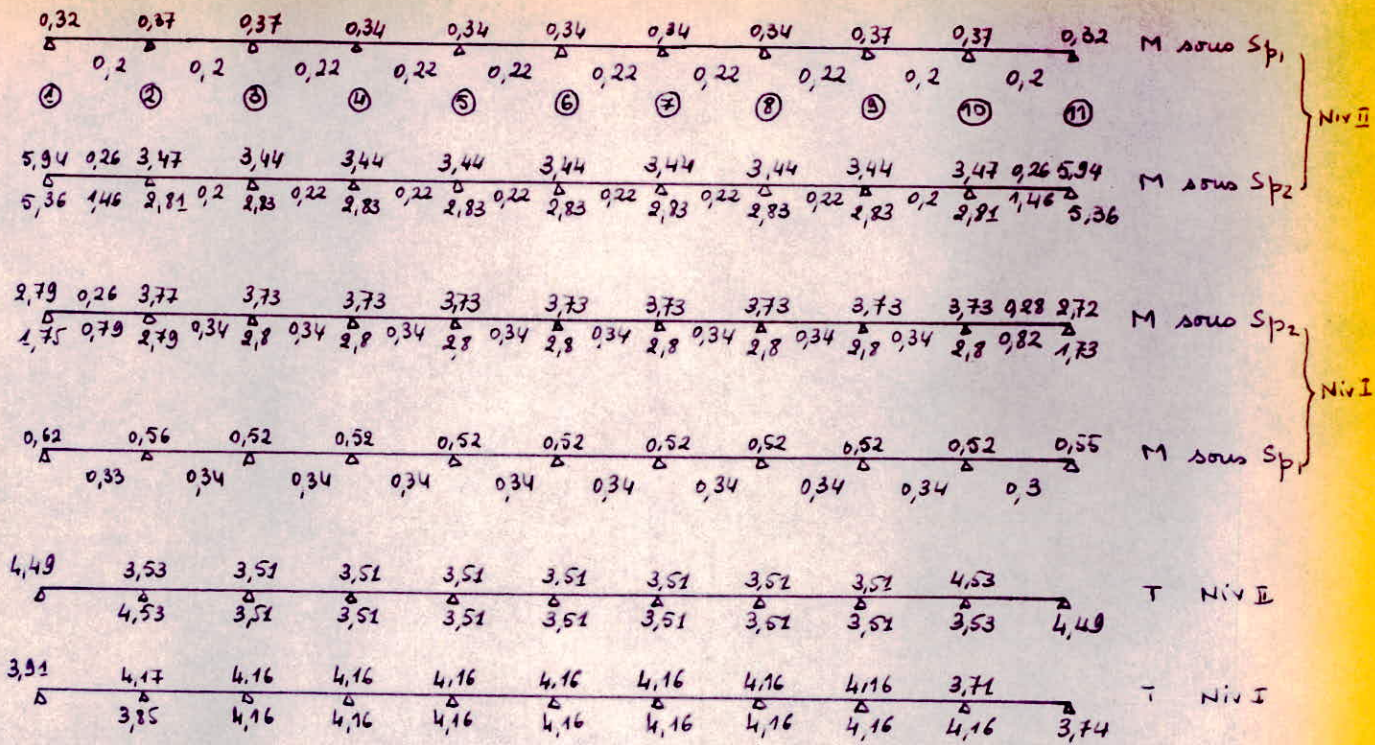 0,32 0,37 0,37 0,34 0,34 0,34 0,34 0,34 0,37 0,37 0,32 M sous Sp1
0,2 0,2 0,22 0,22 0,22 0,22 0,22 0,22 0,2 0,2
① ② ③ ④ ⑤ ⑥ ⑦ ⑧ ⑨ ⑩ ⑪
Niv II
5,94 0,26 3,47 3,44 3,44 3,44 3,44 3,44 3,44 3,44 3,47 0,26 5,94 M sous Sp2
5,36 1,46 2,81 0,2 2,83 0,22 2,83 0,22 2,83 0,22 2,83 0,22 2,83 0,22 2,83 0,22 2,83 0,2 2,81 1,46 5,36
2,79 0,26 3,77 3,73 3,73 3,73 3,73 3,73 3,73 3,73 3,73 0,28 2,72 M sous Sp2
1,75 0,79 2,79 0,34 2,8 0,34 2,8 0,34 2,8 0,34 2,8 0,34 2,8 0,34 2,8 0,34 2,8 0,34 2,8 0,82 1,73
Niv I
0,62 0,56 0,52 0,52 0,52 0,52 0,52 0,52 0,52 0,52 0,55 M sous Sp1
0,33 0,34 0,34 0,34 0,34 0,34 0,34 0,34 0,34 0,3
4,49 3,53 3,51 3,51 3,51 3,51 3,51 3,51 3,51 4,53 T Niv II
4,53 3,51 3,51 3,51 3,51 3,51 3,51 3,51 3,53 4,49
3,91 4,17 4,16 4,16 4,16 4,16 4,16 4,16 4,16 3,71 T Niv I
3,85 4,16 4,16 4,16 4,16 4,16 4,16 4,16 4,16 3,74